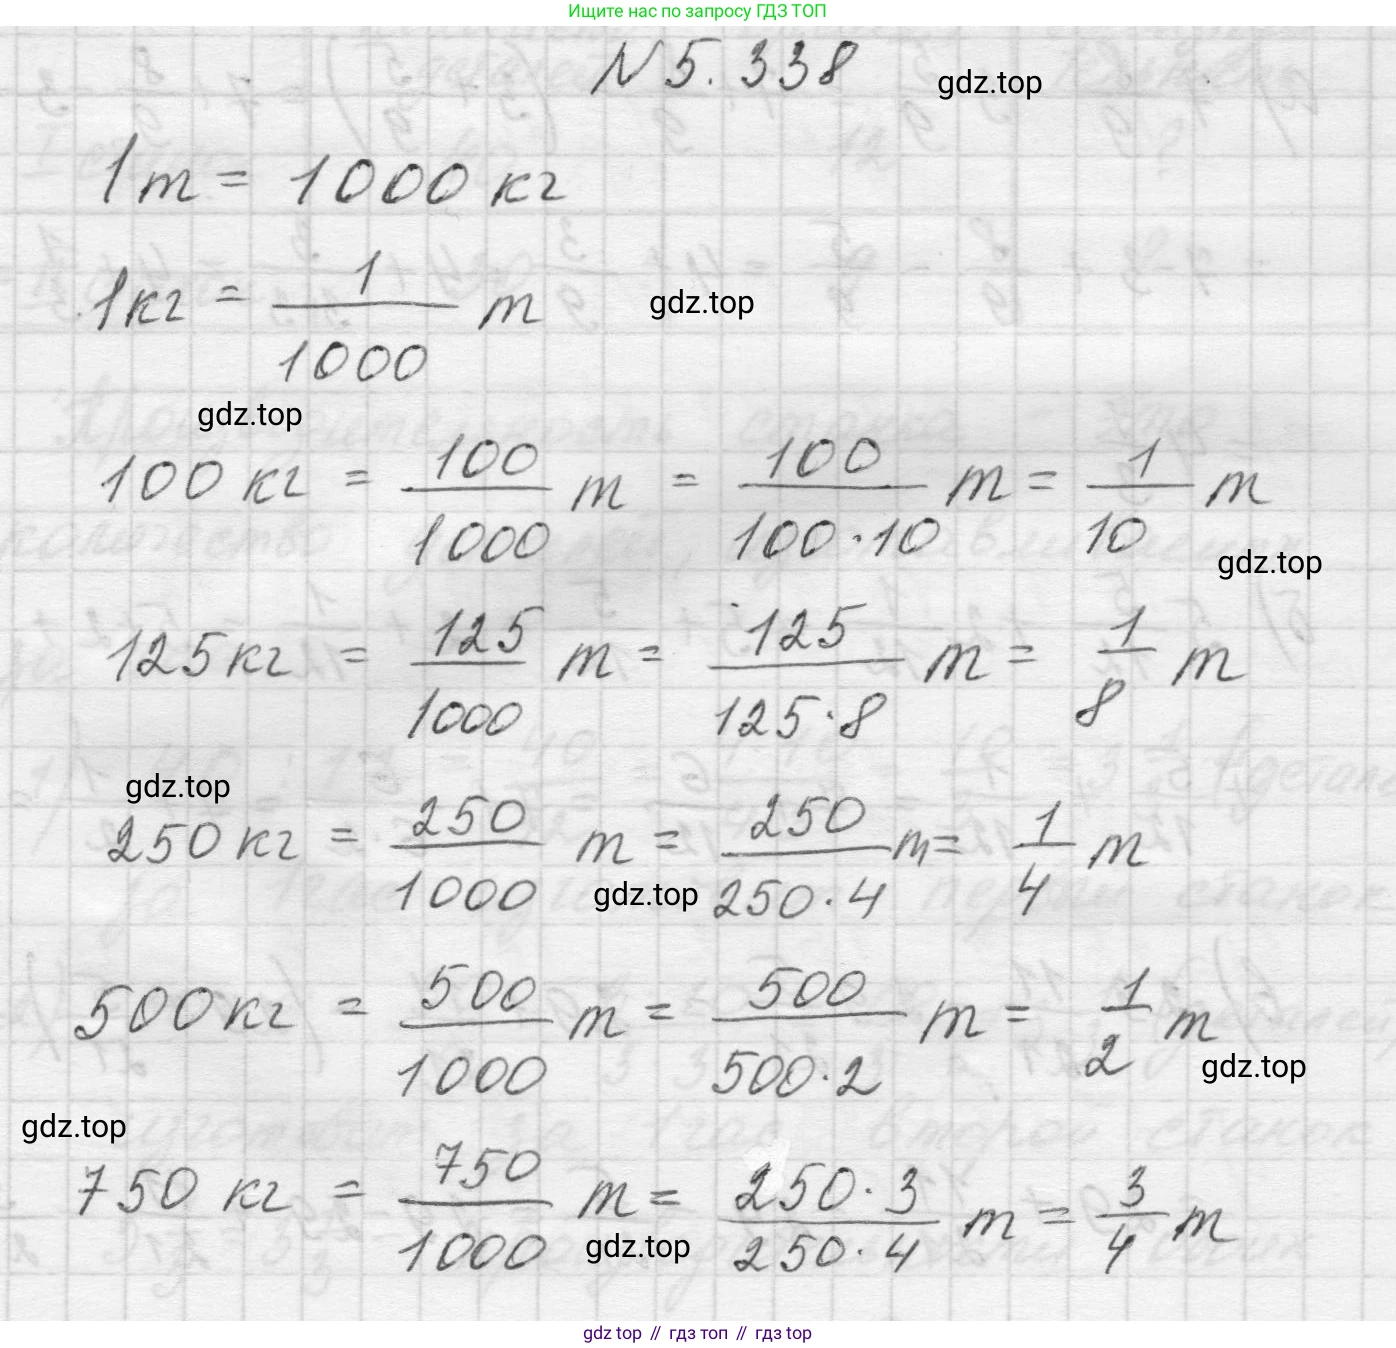 Ищите нас по запросу ГДЗ ТОП
N 5.338 gdz.top
1т = 1000 кг
1кг = 1/1000 т gdz.top
gdz.top
100 кг = 100/1000 т = 100/100·10 т = 1/10 т
gdz.top
125кг = 125/1000 т = 125/125·8 т = 1/8 т
gdz.top
250 кг = 250/1000 т = 250/250·4 т = 1/4 т
gdz.top
500кг = 500/1000 т = 500/500·2 т = 1/2 т
gdz.top
gdz.top
750 кг = 750/1000 т = 250·3/250·4 т = 3/4 т
gdz.top
gdz top // гдз топ // гдз top